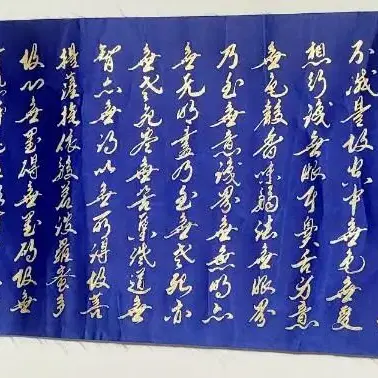 不減是故空中無色無受
想行識無眼耳鼻舌身意
無色聲香味觸法無眼界
乃至無意識界無無明亦
無无明盡乃至無老死亦
無老死盡無苦集滅道無
智亦無得以無所得故菩
提薩埵依般若波羅蜜多
故心無罣礙無罣礙故無